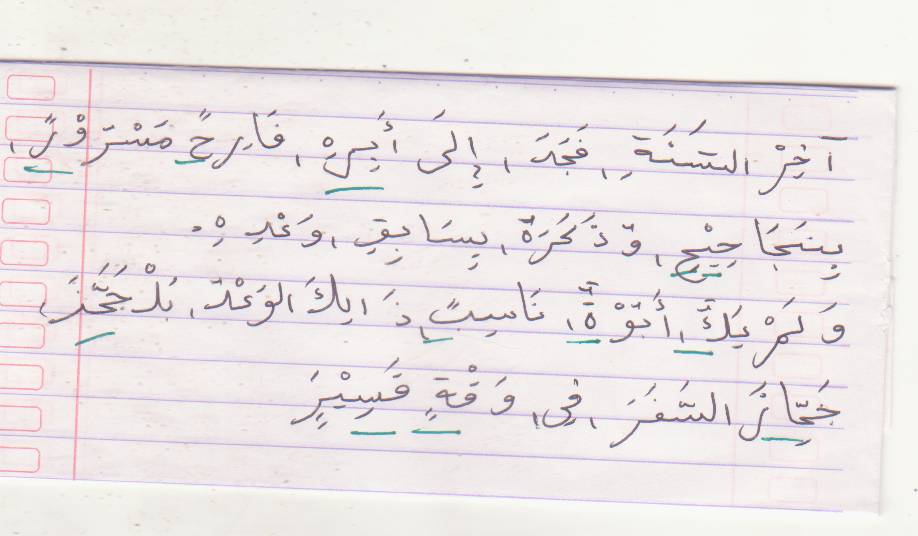 آخِرْ السَنَةِ، فَجَدَ، إِلىَ أَبِيهِ، فَارِحً مَسْرَوْرً،
بِنَجَاحِيْحِ، وَذَكَرَهُ، بِسَابِقِ، وَعْدِهِ.
وَلَمْ يَكَُ، أَبُوْهُ، نَاسِبً ذَالِكَ الوَعْدَ، بَلْ جَهَّزَ،
جَهَّازَ السَفَرَ، فِى، وَقْةٍ قَسِيْرِ